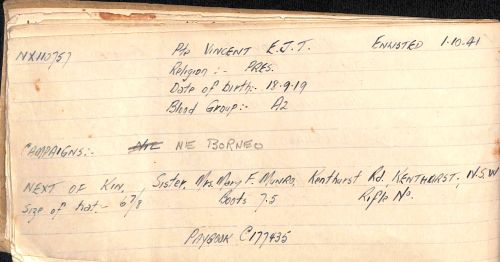 NX110757 Pte VINCENT E.J.T. ENLISTED 1-10-41
Religion :- PRES.
Date of birth:- 18-9-19
Blood Group:- A2
CAMPAIGNS:- NE BORNEO
NEXT OF KIN, Sister, Mrs. Mary F. MUNRO, Kenthurst Rd, KENTHURST, N.S.W
Size of hat:- 6 7/8 Boots 7.5 Rifle No.
PAYBOOK C177435